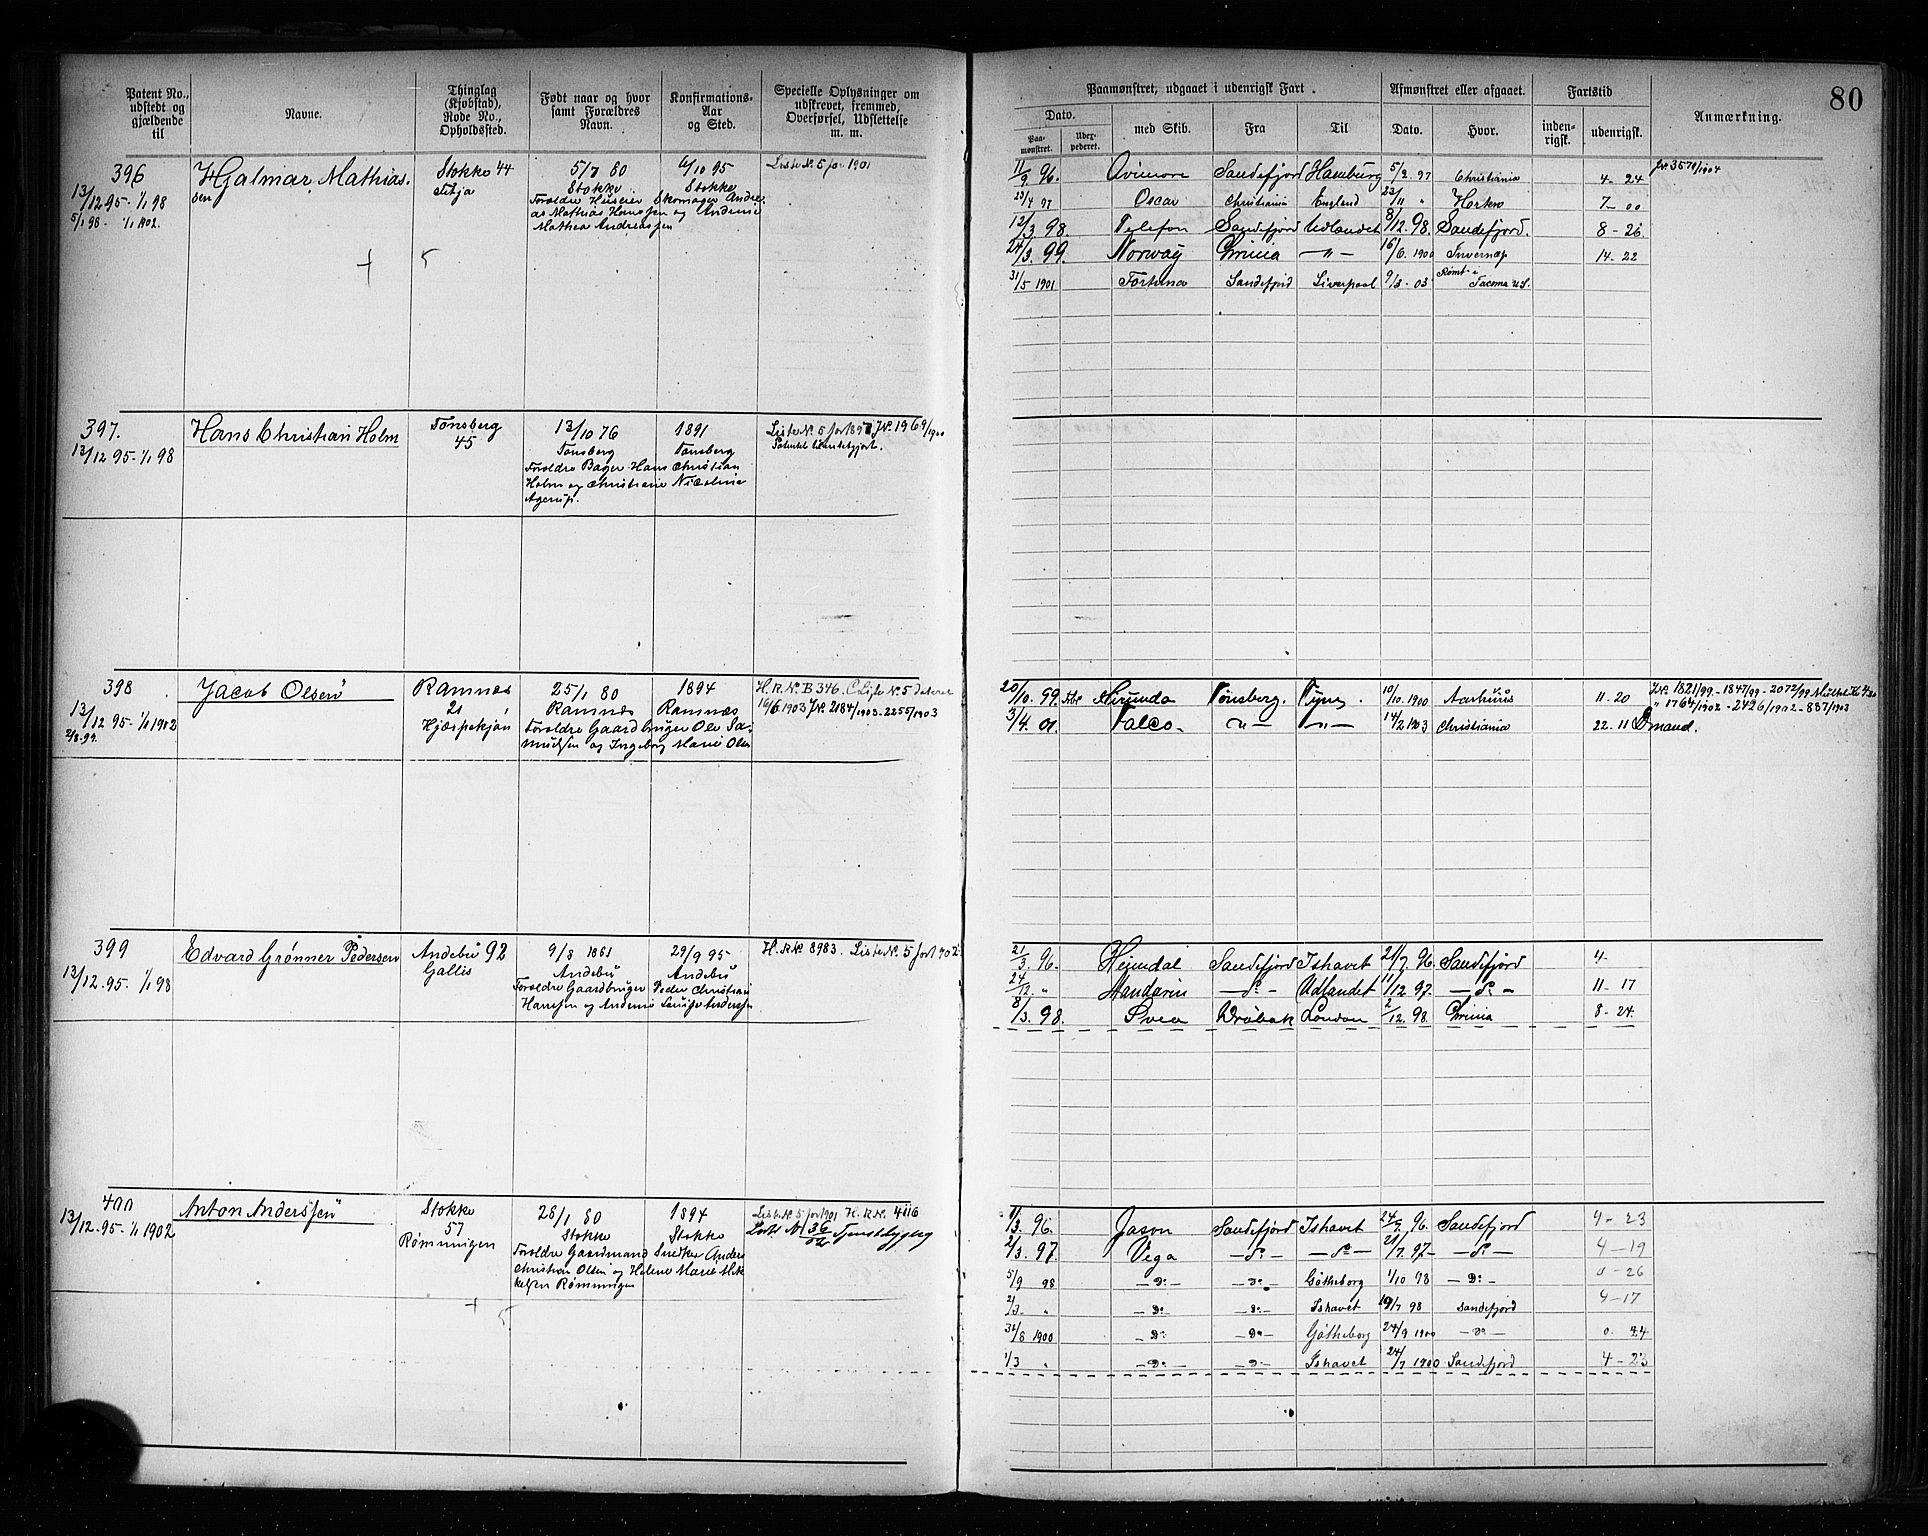 Patent No., udstedt og gjældende til
Navne.
Thinglag (Kjøbstad), Rode No., Opholdssted.
Født naar og hvor samt Forældres Navn.
Konfirmations-Aar og Sted.
Specielle Oplysninger om udskrevet, fremmed, Overførsel, Udslettelse m. m.
Paamønstret, udgaaet i udenrigsk Fart.
Afmønstret eller afgaaet.
Fartstid
Anmærkning.
80
Dato.
Paa-mønstret.
Uder-pederet.
med Skib.
Fra
Til
Dato.
Hvor.
inden-rigsk.
udenrigsk.
396
13/12 95 - 1/1 98
5/1 98 - 1/1 1902.
Hjalmar Mathias.
sen
Stokke 44
5/7 80
Stokke
Forældre Huseier Skomager Andre
as Mathias Hanssen og Andrine
Mathea Andreassen
6/10 95
Stokke
Liste N. 5 for 1901
11/9 96. Avimore Sandefjord Hamburg 5/2 97 Christiania 4 - 24
Oscar Christiania England 23/11 " 7 - 00
12/3 98. Telefon Sandefjord Udlandet 8/12 98. Sandefjord. 8 - 26.
24/3 99. Norway Grimia - " - 16/6. 1900 14 - 22
31/5 1901 Fortuna Sandefjord Liverpool 9/3 - 03 Rømt i Tacoma U.S.
JN. 3570/1904
397.
13/12 95 - 1/1 98
Hans Christian Holm
Tønsberg
45
13/10 76
Tønsberg
Forældre Bager Hans Christian
Holm og Christiane Nicoline
Agerup.
1891
Tønsberg
Liste N. 5 for 1897 JN. 1969/1900
398
13/12 95 - 1/1 1902
2/8 99.
Jacob Olsen
Ramnæs
21
25/1 80
Ramnæs
Forældre Gaardbruger Ole Sa-
muelsen og Ingeborg Marie Olsen
1894
Ramnæs
H.R.N. B 346. Liste N. 5
16/6 1903 JN. 2184/1903 - 2255/1903
20/10. 99. Tønsberg. Tyne. 10/10. 1900 Aarhuus 11 - 20
3/4. 01. Falco - " - - " - 14/2 1903 Christiania 22 - 11
JN. 1821/99 - 1847/99 - 2072/99
" 1764/1902 - 2426/1902 - 837/1903
399
13/12 - 95 - 1/1 98
Edvard Grønner Pedersen
Andebu 92
Gallis
9/8 1881
Andebu
Forældre Gaardbruger Peder Christian
Hanssen og Andrine Lovise Anderssen
29/9 95
Andebu
H.R.N. 8983. Liste N. 5 for 1902
21/3. 96. Heimdal Sandefjord Ishavet 21/7 96 Sandefjord 4 -
24/12. " Mandarin - do - Udlandet 11/12 97. - do - 11 - 17
8/3. 98. Svea Drøbak London 2/12. 98. Grimia 8 - 24.
400
13/12 - 95 - 1/1 1902
Anton Anderssen
Stokke
57
Rømmingen
28/1 80
Stokke
Forældre Gaardmand Snedker Anders
Christian Olsen og Helene Marie Mik
kelsen Rømmingen
1894
Stokke
Liste N. 5 for 1901 H.R.N. 4116
Lodt N. 36/02 Tjenstdygtig
1/3. 96. Jason Sandefjord Ishavet 24/9. 96. Sandefjord 4 - 23
2/3. 97. Vega - do - - do - 21/7 97 - - do - 4 - 19
5/9 98 - Do - - Do - Gøtheborg 1/10 98 - Do - 0 - 26
2/3 - " - Do - - Do - Ishavet 19/7 98 Sandefjord 4 - 17
31/8 1900 - Do - - Do - Gøtheborg 24/9 1900 - Do - 0. 24
1/3 " - Do - - Do - Ishavet 24/7 1900 Sandefjord 4 - 23